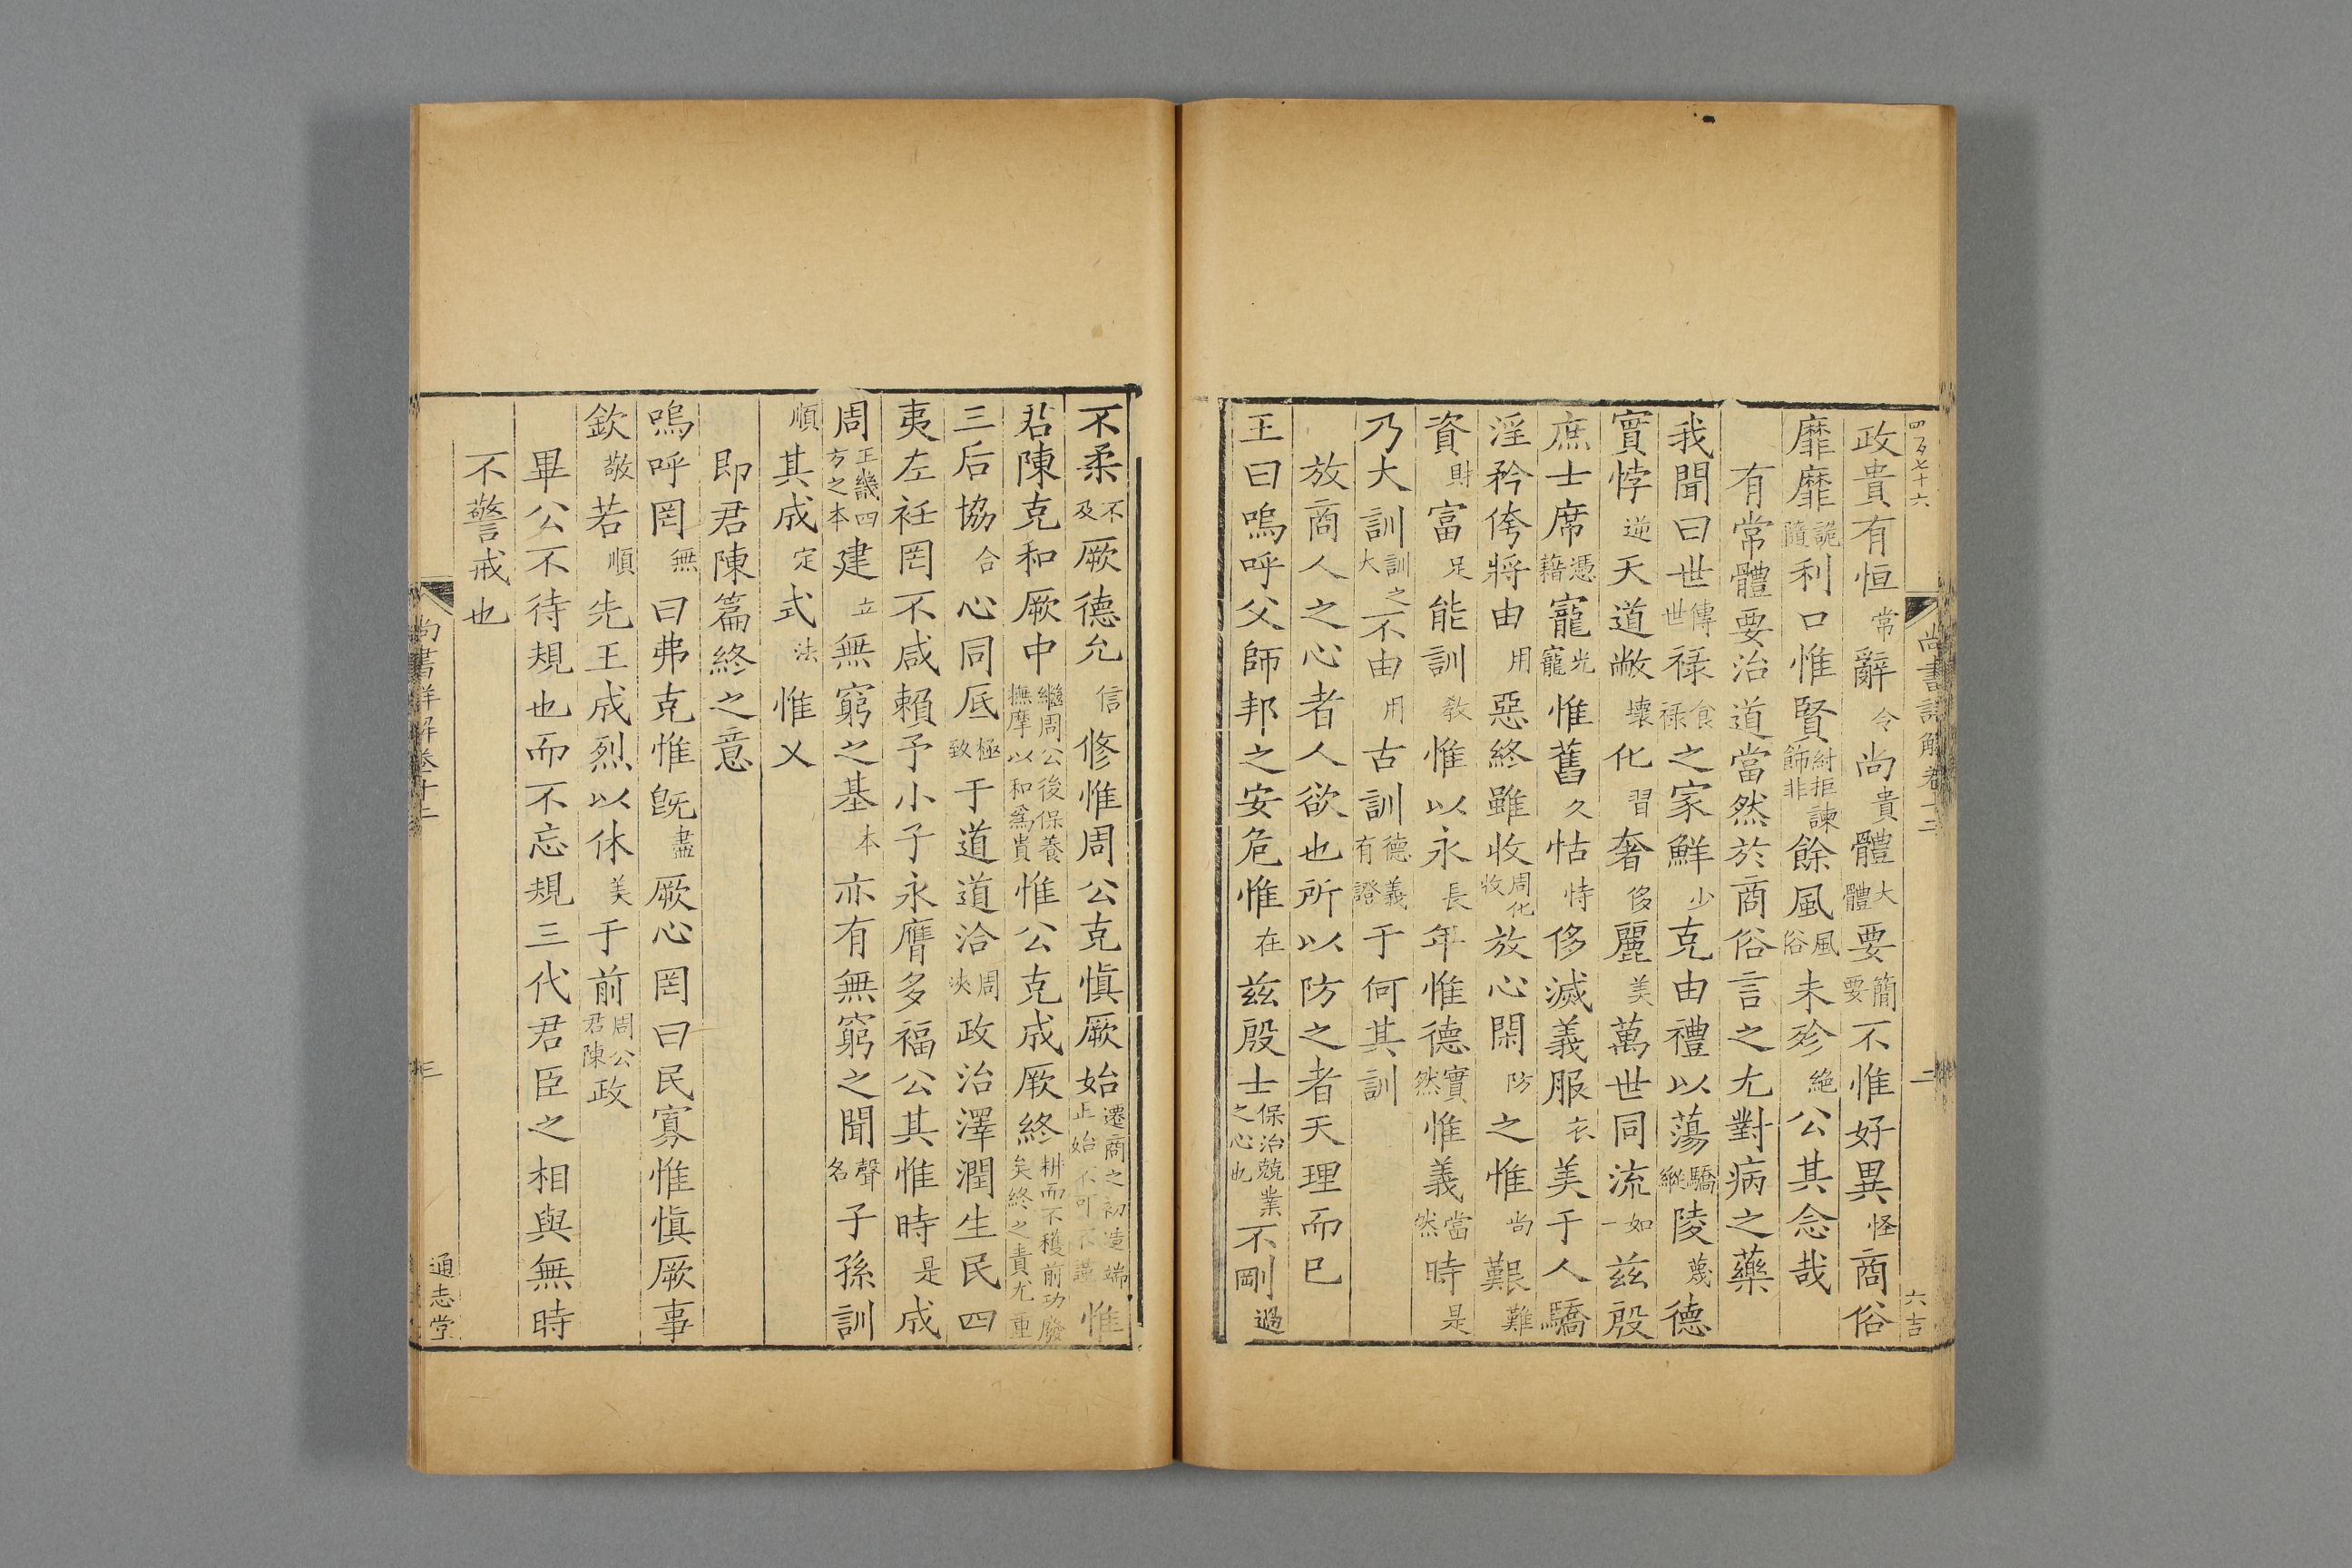 四百七十六
尚書詳解卷十二
二
六吉
政貴有恒常辭令尚貴體大體要簡要不惟好異怪商俗
靡靡詭隨利口惟賢紂拒諫飾非餘風風俗未殄絶公其念哉
有常體要治道當然於商俗言之尤對病之藥
我聞曰世傳世祿食祿之家鮮少克由禮以蕩驕縱陵蔑德
實悖逆天道敝壞化習奢侈麗美萬世同流如一茲殷
庶士席憑藉寵光寵惟舊久怙恃侈滅義服衣美于人驕
淫矜侉將由用惡終雖收周化收放心閑防之惟尚艱難
資財富足能訓教惟以永長年惟德實然惟義當然時是
乃大訓訓之大不由用古訓德義有證于何其訓
放商人之心者人欲也所以防之者天理而已
王曰嗚呼父師邦之安危惟在茲殷士保治兢業之心也不剛過
不柔不及厥德允信修惟周公克慎厥始遷商之初造端正始不可不謹惟
君陳克和厥中繼周公後保養撫摩以和爲貴惟公克成厥終耕而不穫前功廢矣終之責尤重
三后協合心同厎極致于道道洽周浹政治澤潤生民四
夷左衽罔不咸賴予小子永膺多福公其惟時是成
周王畿四方之本建立無窮之基本亦有無窮之聞聲名子孫訓
順其成定式法惟乂
即君陳篇終之意
嗚呼罔無曰弗克惟旣盡厥心罔曰民寡惟慎厥事
欽敬若順先王成烈以休美于前周公君陳政
畢公不待規也而不忘規三代君臣之相與無時
不警戒也
尚書詳解卷十二
三
通志堂